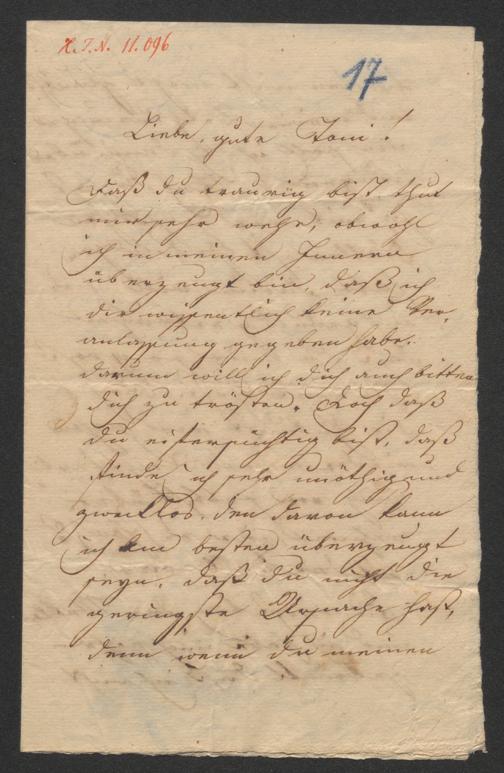 H.I.N. 11.096
17
Liebe, gute Toni!
Daß du traurig bist, thut
mir sehr wehe, obwohl
ich in meinen Innern
überzeugt bin, daß ich
dir wissentlich keine Ver,
anlassung gegeben habe.
darum will ich dich auch bitten
dich zu trösten. Doch daß
du eifersüchtig bist, daß
finde ich sehr unöthig und
zwecklos. den davon kann
ich am besten überzeugt
seyn, daß du nicht die
geringste Ursache hast,
denn wenn du meinen